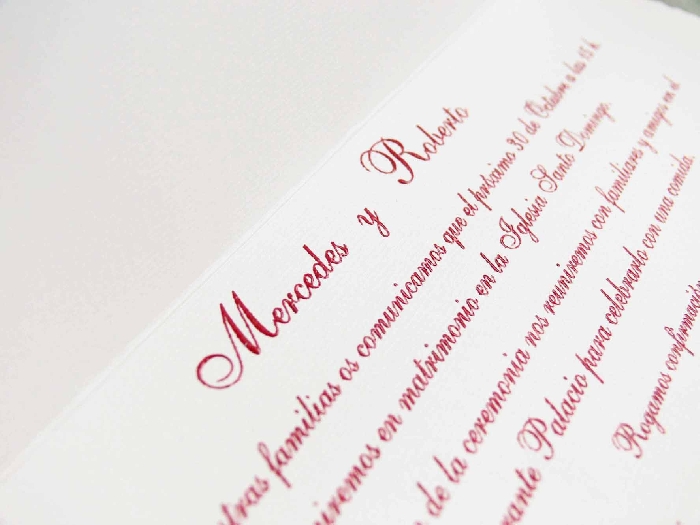 Mercedes y Roberto
tras familias os comunicamos que el próximo 30 de Octubre a las 13 h.
iremos en matrimonio en la Iglesia Santo Domingo.
de la ceremonia nos reuniremos con familiares y amigos en el
rante Palacio para celebrarlo con una comida.
Rogamos confirmación